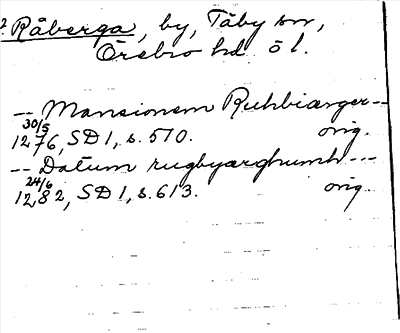 ? Råberga, by, Täby sn,
Örebro hd ö l.
-- Mansionem Ruhbiærger --
30/5
1276, SD 1, s. 510. orig.
-- Datum rugbyærghumh ---
24/6
1282, SD 1, s. 613. orig.